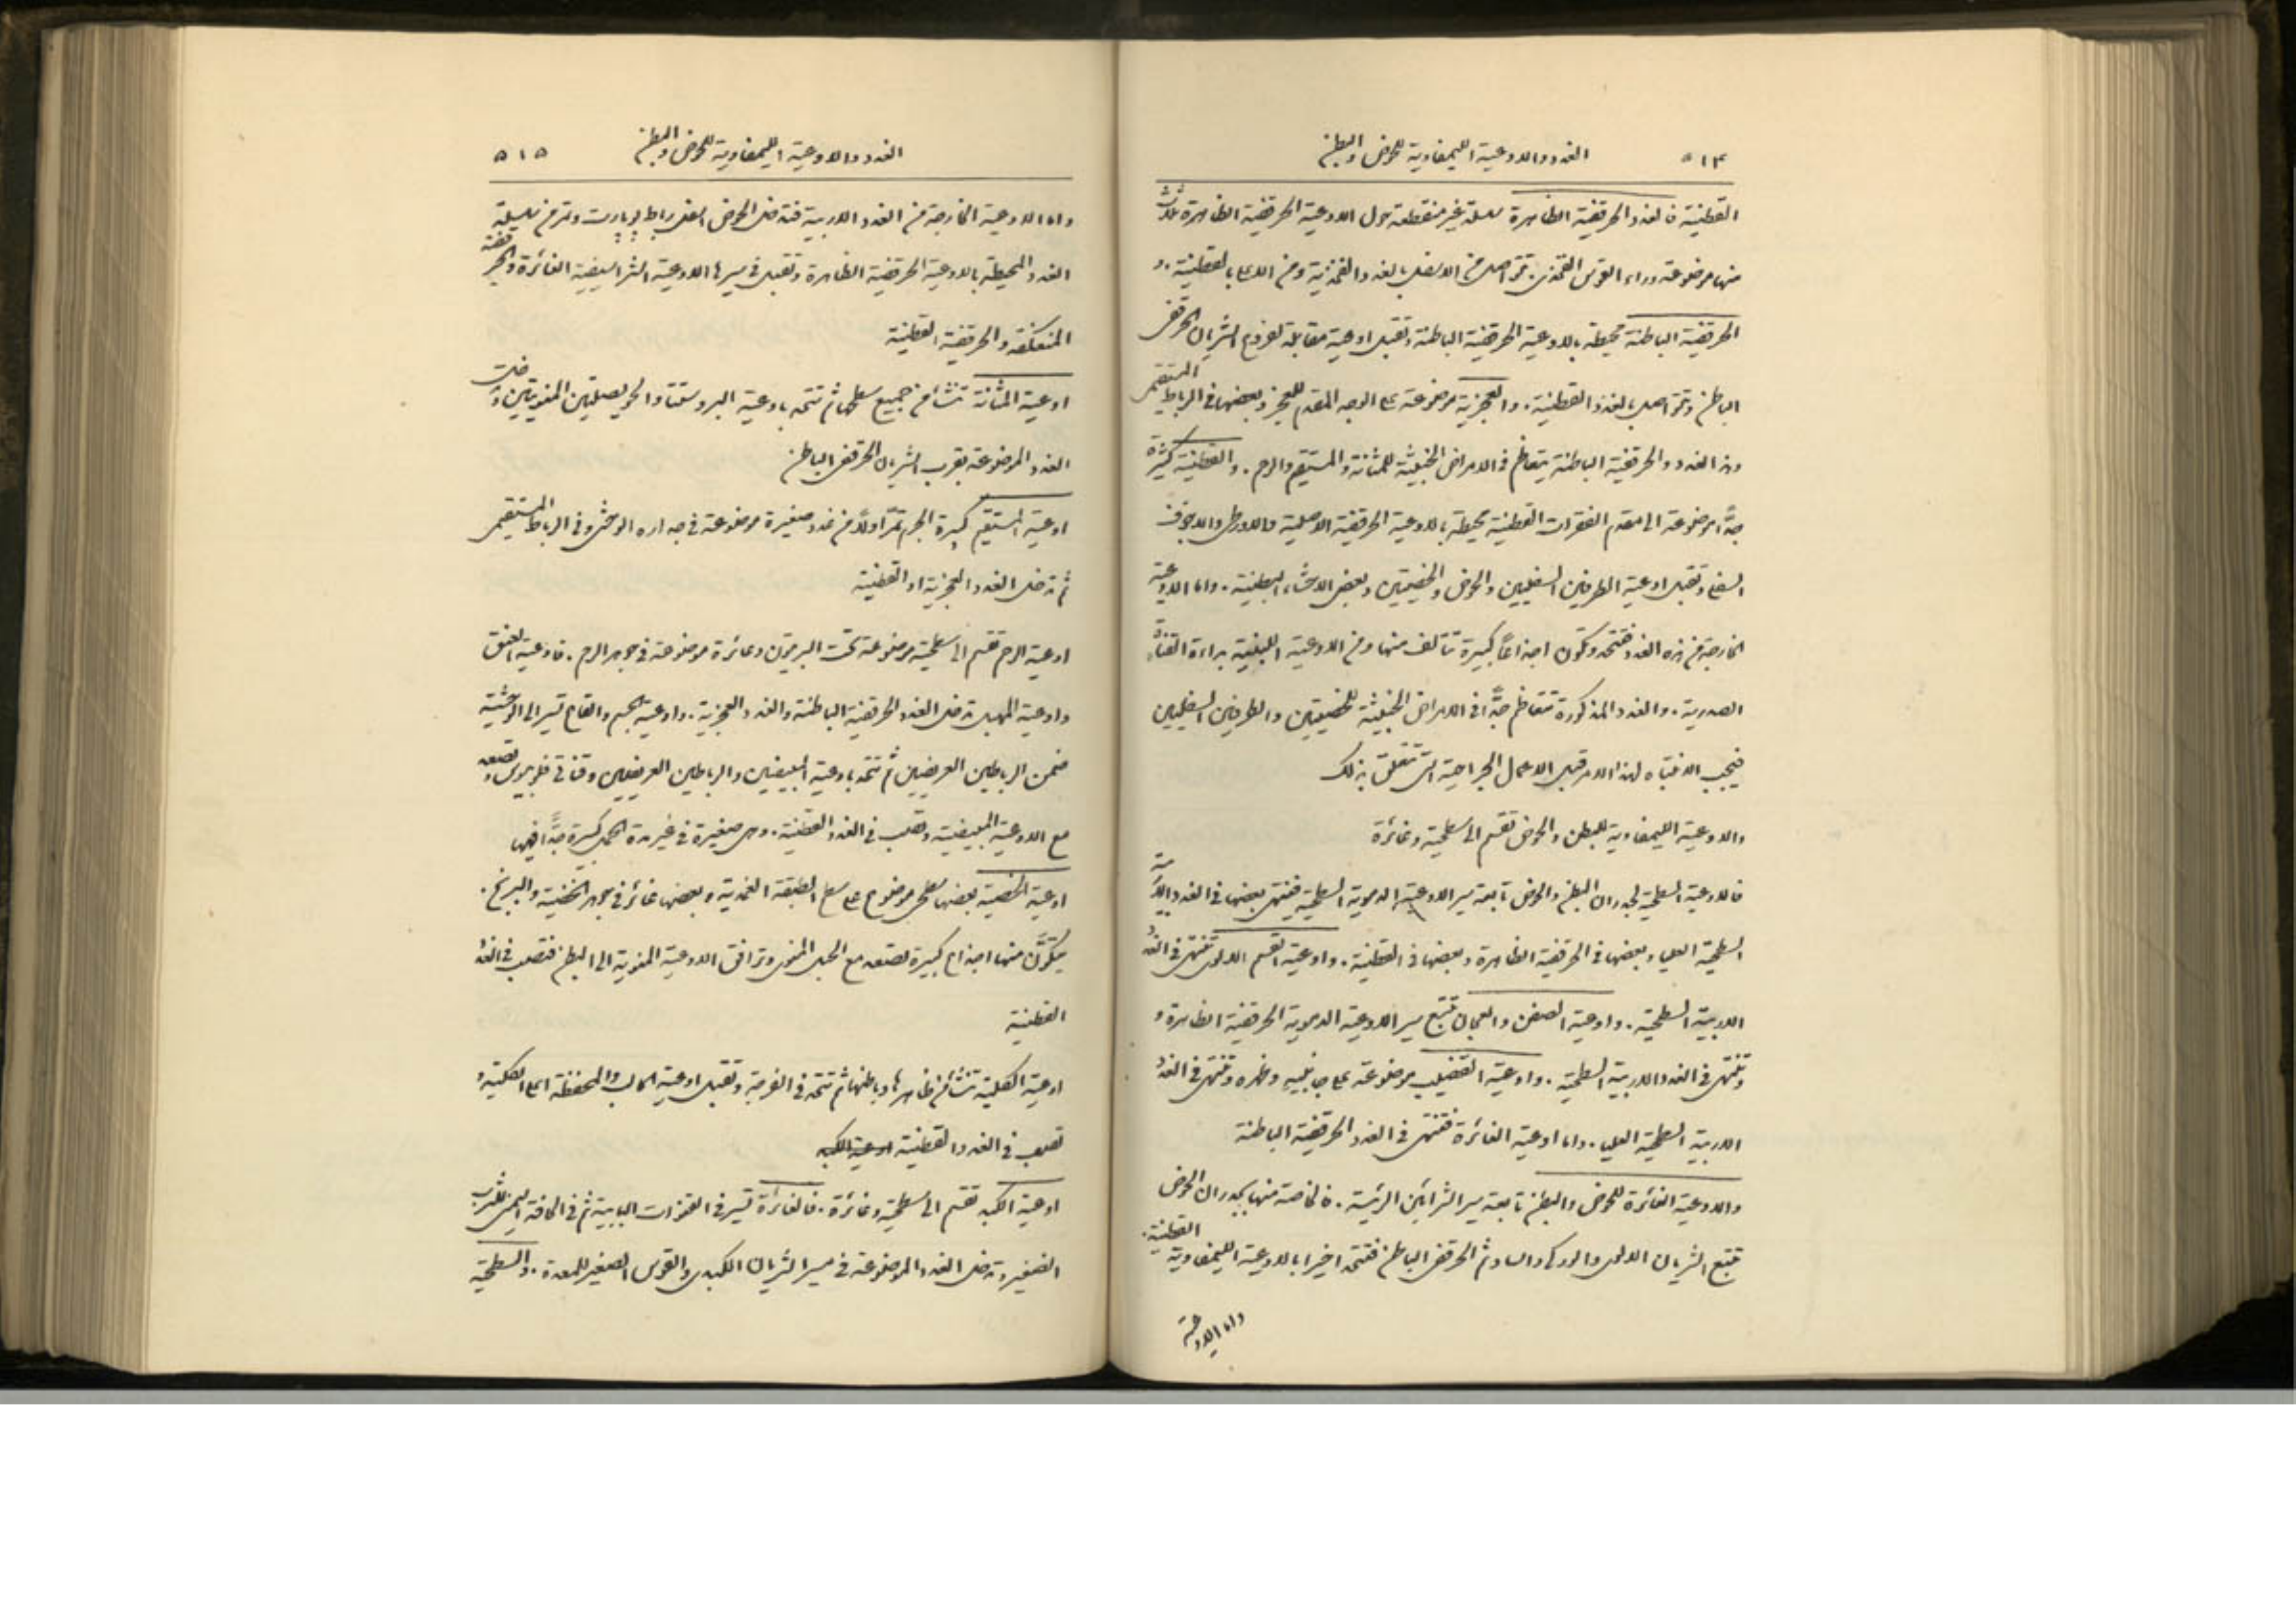 ٥١٤ الغدد والاوعية الليمفاوية للحوض والبطن
القطنية فالغدد الحرقفية الظاهرة سلسلة غير منقطعة حول الاوعية الحرقفية الظاهرة ثلاث
منها موضوعة وراء القوس الفخذي تتواصل من الاسفل بالغدد الفخذية ومن الاعلى بالقطنية. و
الحرقفية الباطنة محيطة بالاوعية الحرقفية الباطنة وتقبل اوعية مقابلة لفروع الشريان الحرقفي
الباطن وتتواصل بالغدد القطنية. والعجزية موضوعة على الوجه المقدم للعجز وبعضها في الرباط المستقيمي
وهذه الغدد والحرقفية الباطنة يتعاظم في الامراض الخبيثة للمثانة والمستقيم والرحم. والقطنية كثيرة
جدًّا موضوعة الى مقدم الفقرات القطنية محيطة بالاوعية الحرقفية الاصلية والاورطي والاجوف
السفلي وتقبل اوعية الطرفين السفليين والحوض والخصيتين وبعض الاحشاء البطنية. واما الاوعية
الخارجة من هذه الغدد فتتحد وتكون اجذاعًا كبيرة تتالف منها ومن الاوعية اللبنية بداءة القناة
الصدرية. والغدد المذكورة تتعاظم جدًّا في الامراض الخبيثة للخصيتين والطرفين السفليين
فيجب الانتباه لهذا الامر قبل الاعمال الجراحية التي تتعلق بذلك
والاوعية الليمفاوية للبطن والحوض تقسم الى سطحية وغائرة
فالاوعية السطحية لجدران البطن والحوض تابعة سير الاوعية الدموية السطحية فينتهي بعضها في الغدد الاربية
السطحية العليا وبعضها في الحرقفية الظاهرة وبعضها في القطنية. واوعية القسم الالوي تنتهي في الغدد
الاربية السطحية. واوعية الصفن والعجان تتبع سير الاوعية الدموية الحرقفية الظاهرة و
وتنتهي في الغدد الاربية السطحية. واوعية القضيب موضوعة على جانبيه وظهره وتنتهي في الغدد
الاربية السطحية العليا. واما اوعية الغائرة فتنتهي في الغدد الحرقفية الباطنة
والاوعية الغائرة للحوض والبطن تابعة سير الشرائين الرئيسة. فالخاصة منها بجدران الحوض
تتبع الشريان الالوي والوركي والسادّ ثم الحرقفي الباطن فتتحد اخيرا بالاوعية الليمفاوية القطنية.
واما الاوعية
الغدد والاوعية الليمفاوية للحوض والبطن ٥١٥
واما الاوعية الخارجة من الغدد الاربية فتدخل الحوض اسفل رباط بوبارت وتمر في سلسلة
الغدد المحيطة بالاوعية الحرقفية الظاهرة وتقبل في سيرها الاوعية الشراسيفية الغائرة والحرقفية
المنعكفة والحرقفية القطنية
اوعية المثانة تنشأ من جميع سطحها ثم تتحد باوعية البروستتا والحويصلتين المنويتين وتدخل
الغدد الموضوعة بقرب الشريان الحرقفي الباطن
اوعية المستقيم كبيرة الحجم تمرّ اولاً في غدد صغيرة موضوعة في جداره الوحشي وفي الرباط المستقيمي
ثم تدخل الغدد العجزية او القطنية
اوعية الرحم تقسم الى سطحية موضوعة تحت البريتون وغائرة موضوعة في جوهر الرحم. فاوعية العنق
واوعية المهبل تدخل الغدد الحرقفية الباطنة والغدد العجزية. واوعية الجسم والقاع تسير الى الوحشية
ضمن الرباطين العريضين ثم تتحد باوعية المبيضين والرباطين العريضين وقناتي فلوبيوس وتصعد
مع الاوعية المبيضية وتصب في الغدد القطنية. وهي صغيرة في غير مدة الحمل كبيرة جدًّا فيها
اوعية الخصية بعضها سطحي موضوع على سطح الطبقة الغمدية وبعضها غائر في جوهر الخصية والبربخ.
يتكوَّن منها اجذاع كبيرة تصعد مع الحبل المنوي وترافق الاوعية المنوية الى البطن فتصب في الغدد
القطنية
اوعية الكلية تنشأ من ظاهرها وباطنها ثم تتحد في الفرجة وتقبل اوعية الحالب والمحفظة اعلى الكلية و
تصب في الغدد القطنية اوعية الكبد
اوعية الكبد تقسم الى سطحية وغائرة. فالغائرة تسير في القنوات البابية ثم في الحافة اليمنى للثرب
الصغير وتدخل الغدد الموضوعة في مسير الشريان الكبدي والقوس الصغير للمعدة. والسطحية